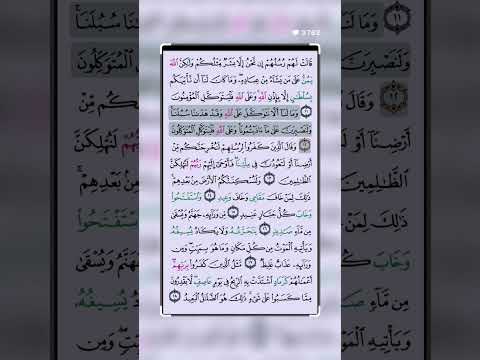 3762
قَالَتْ لَهُمْ رُسُلُهُمْ إِن نَّحْنُ إِلَّا بَشَرٌ مِّثْلُكُمْ وَلَٰكِنَّ ٱللَّهَ
يَمُنُّ عَلَىٰ مَن يَشَآءُ مِنْ عِبَادِهِۦ ۖ وَمَا كَانَ لَنَآ أَن نَّأْتِيَكُم
بِسُلْطَٰنٍ إِلَّا بِإِذْنِ ٱللَّهِ ۚ وَعَلَى ٱللَّهِ فَلْيَتَوَكَّلِ ٱلْمُؤْمِنُونَ
١١ وَمَا لَنَآ أَلَّا نَتَوَكَّلَ عَلَى ٱللَّهِ وَقَدْ هَدَىٰنَا سُبُلَنَا ۚ
وَلَنَصْبِرَنَّ عَلَىٰ مَآ ءَاذَيْتُمُونَا ۚ وَعَلَى ٱللَّهِ فَلْيَتَوَكَّلِ ٱلْمُتَوَكِّلُونَ
١٢ وَقَالَ ٱلَّذِينَ كَفَرُوا۟ لِرُسُلِهِمْ لَنُخْرِجَنَّكُم مِّنْ
أَرْضِنَآ أَوْ لَتَعُودُنَّ فِى مِلَّتِنَا ۖ فَأَوْحَىٰٓ إِلَيْهِمْ رَبُّهُمْ لَنُهْلِكَنَّ
ٱلظَّٰلِمِينَ ١٣ وَلَنُسْكِنَنَّكُمُ ٱلْأَرْضَ مِنۢ بَعْدِهِمْ ۚ
ذَٰلِكَ لِمَنْ خَافَ مَقَامِى وَخَافَ وَعِيدِ ١٤ وَٱسْتَفْتَحُوا۟
وَخَابَ كُلُّ جَبَّارٍ عَنِيدٍ ١٥ مِّن وَرَآئِهِۦ جَهَنَّمُ وَيُسْقَىٰ
مِن مَّآءٍ صَدِيدٍ ١٦ يَتَجَرَّعُهُۥ وَلَا يَكَادُ يُسِيغُهُۥ
وَيَأْتِيهِ ٱلْمَوْتُ مِن كُلِّ مَكَانٍ وَمَا هُوَ بِمَيِّتٍ ۖ وَمِن
وَرَآئِهِۦ عَذَابٌ غَلِيظٌ ١٧ مَّثَلُ ٱلَّذِينَ كَفَرُوا۟ بِرَبِّهِمْ ۖ
أَعْمَٰلُهُمْ كَرَمَادٍ ٱشْتَدَّتْ بِهِ ٱلرِّيحُ فِى يَوْمٍ عَاصِفٍ ۖ لَّا يَقْدِرُونَ
مِمَّا كَسَبُوا۟ عَلَىٰ شَىْءٍ ۚ ذَٰلِكَ هُوَ ٱلضَّلَٰلُ ٱلْبَعِيدُ ١٨